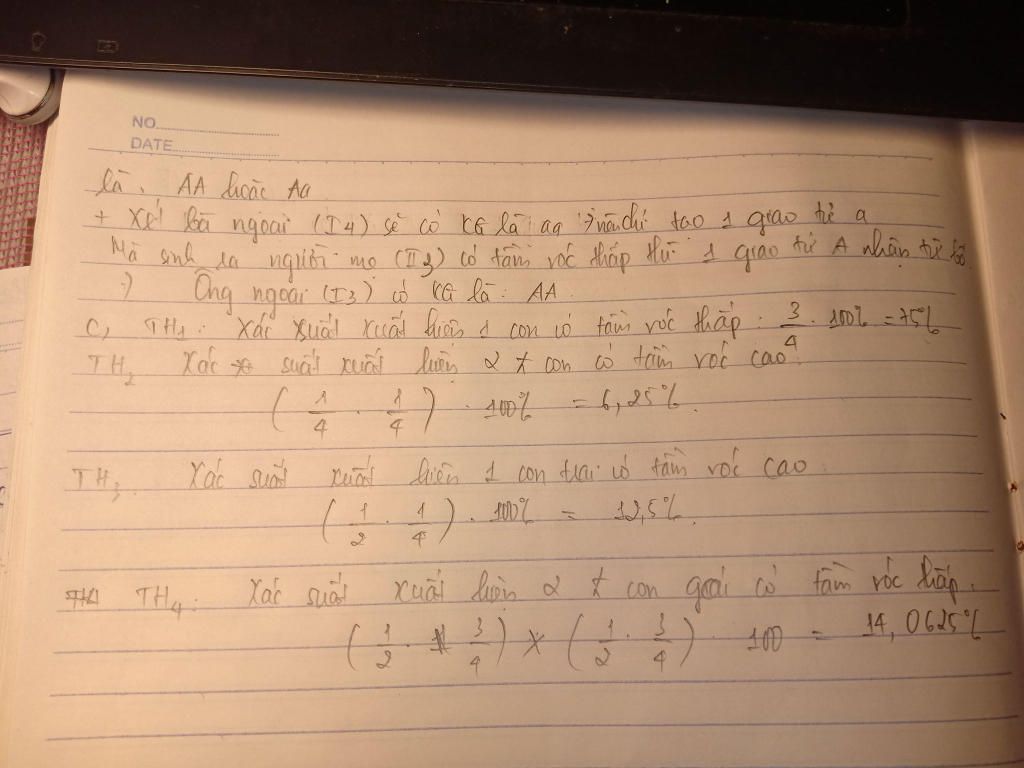 NO.
DATE
là. AA hoặc Aa
+ Xét bà ngoại (I4) sẽ có KG là: aa chỉ tạo 1 giao tử a
Mà sinh ra người mẹ (II3) có tầm vóc thấp thì 1 giao tử A nhận từ bố.
Ông ngoại (I3) có KG là: AA.
C, TH1: Xác xuất xuất hiện 1 con có tầm vóc thấp: 3/4 . 100% = 75%
TH2 Xác suất xuất hiện 2 con có tầm vóc cao
(1/4 . 1/4) . 100% = 6,25%.
TH3. Xác suất xuất hiện 1 con trai có tầm vóc cao
(1/2 . 1/4) . 100% = 12,5%.
TH4: Xác suất xuất hiện 2 con gái có tầm vóc thấp.
(1/2 . 3/4) x (1/2 . 3/4) . 100 = 14,0625%